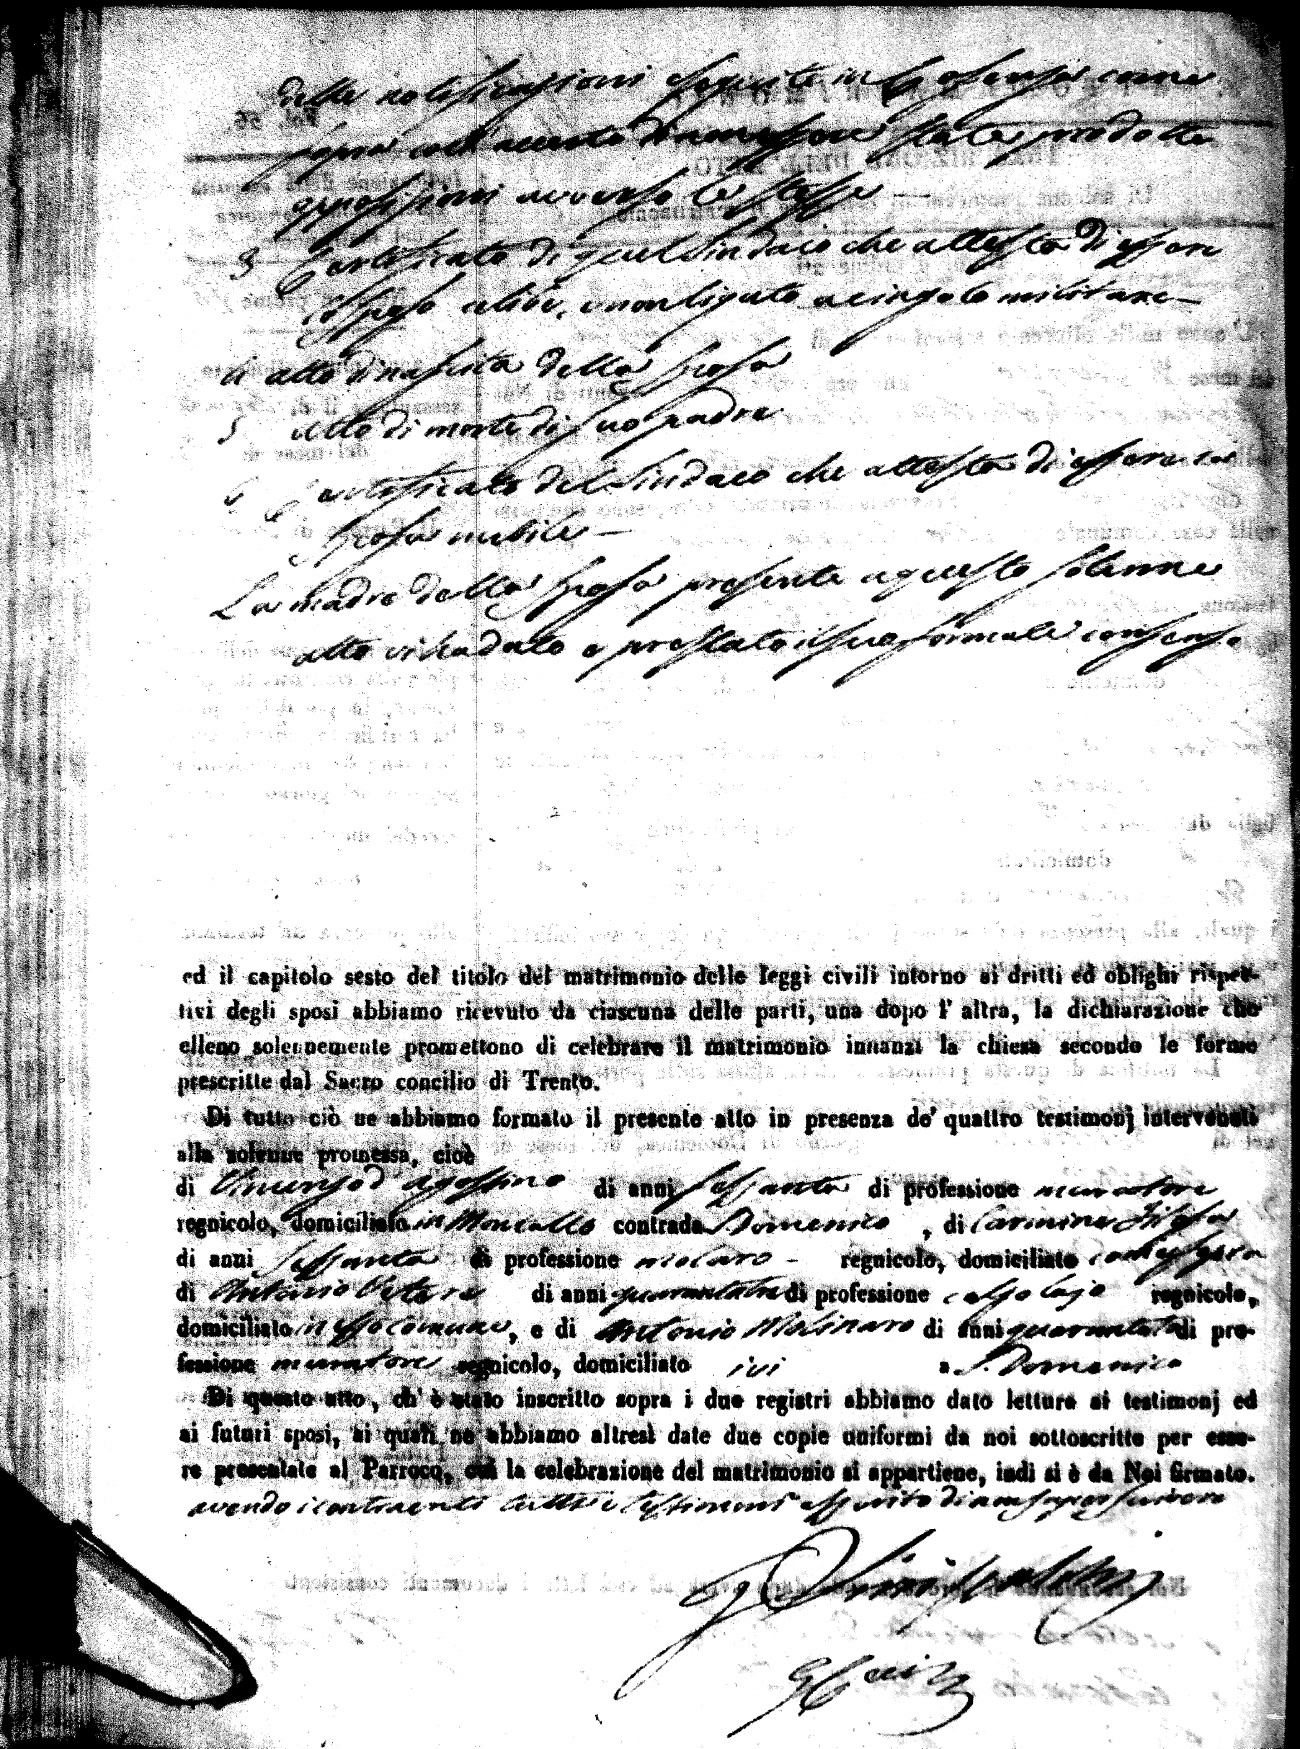 delle notificazioni eseguite in Cosenza come
sopra coll'accerto di non essere state prodotte
opposizioni avverso le stesse
3 Certificato di quel Sindaco che attesta di essere
lo sposo celibe, e non ligato a cingolo militare
4 atto di nascita della sposa
5 atto di morte di suo padre
6 Certificato del Sindaco che attesta di essere la
sposa nubile
La madre della sposa presente a questo solenne
atto vi ha dato e prestato il suo formale consenso
ed il capitolo sesto del titolo del matrimonio delle leggi civili intorno ai dritti ed oblighi rispet-
tivi degli sposi abbiamo ricevuto da ciascuna delle parti, una dopo l' altra, la dichiarazione che
elleno solennemente promettono di celebrare il matrimonio innanzi la chiesa secondo le forme
prescritte dal Sacro concilio di Trento.
Di tutto ciò ne abbiamo formato il presente atto in presenza de' quattro testimonj intervenuti
alla solenne promessa, cioè
di Vincenzo d'Agostino di anni sessanta di professione muratore
regnicolo, domiciliato in contrada Domenico , di Carmine
di anni sessanta di professione regnicolo, domiciliato
di Antonio di anni di professione calzolajo regnicolo,
domiciliato in esso comune, e di Antonio Molinaro di anni di pro-
fessione muratore regnicolo, domiciliato ivi a S. Domenico
Di questo atto, ch' è stato inscritto sopra i due registri abbiamo dato lettura ai testimonj ed
ai futuri sposi, ai quali ne abbiamo altresì date due copie uniformi da noi sottoscritte per esse-
re presentate al Parroco, cui la celebrazione del matrimonio si appartiene, indi si è da Noi firmato.
avendo i contraenti tutti e testimoni asserito di non saper scrivere